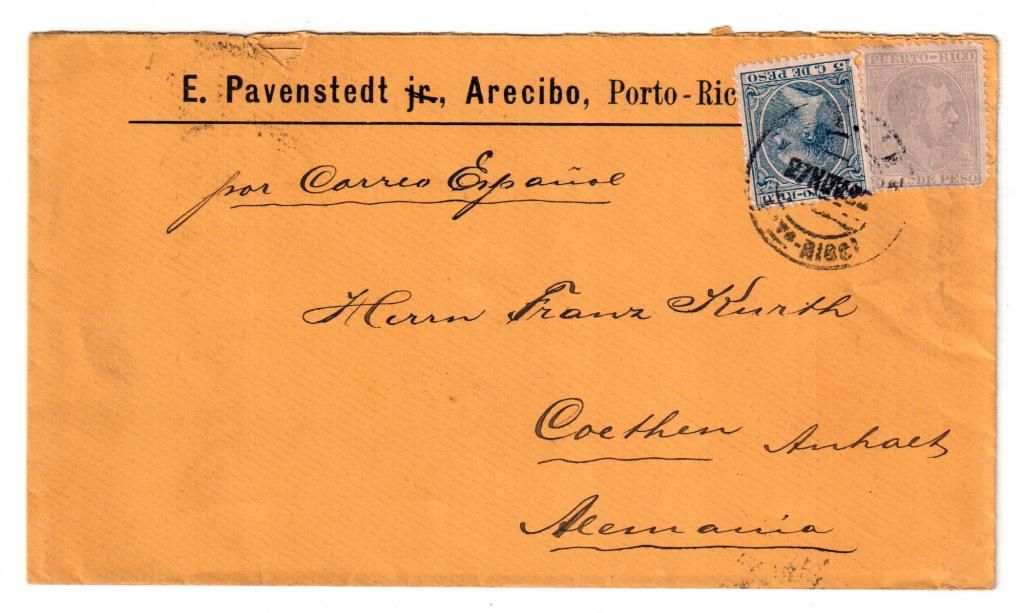 E. Pavenstedt jr., Arecibo, Porto-Ric
5 C. DE PESO
PUERTO-RICO
DE PESO
por Correo Español
Herrn Franz Kurth
Coethen Anhalt
Alemania